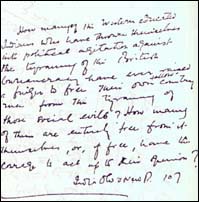 How many of the Western educated
Indians who have thrown themselves
into political agitation against
the tyranny of the British
bureaucracy have ever raised
a finger to free their own country
men from the tyranny of
those social evils? How many
of them are entirely free from it
themselves, or, if free, have the
courage to act up to their opinion?